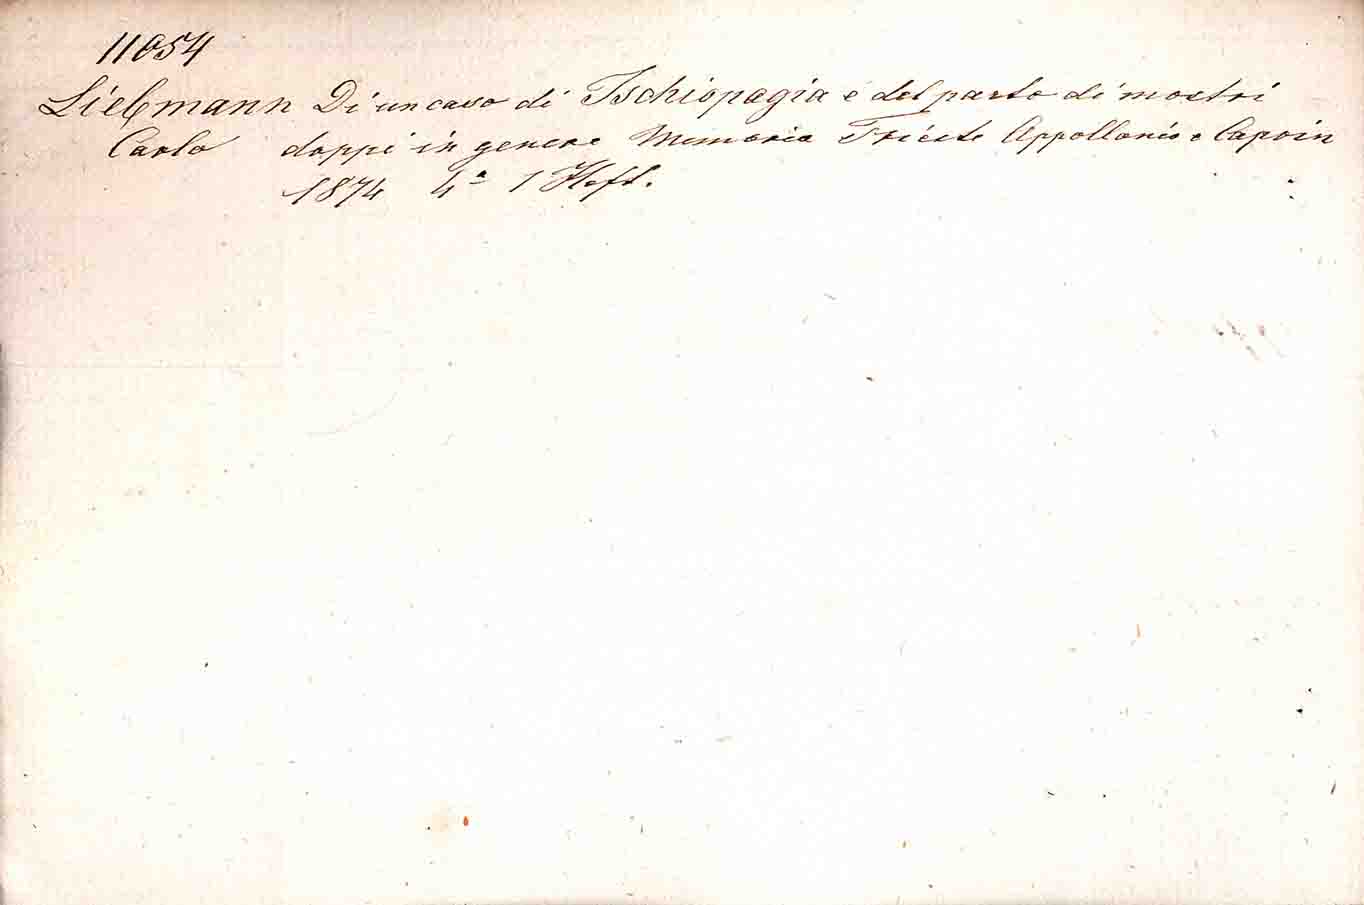 11054
Liebmann Di un caso di Ischiopagia e del parto di mostri
Carlo doppi in genere Memoria Trieste Appollonio e Caprin
1874 4° 1 Heft.